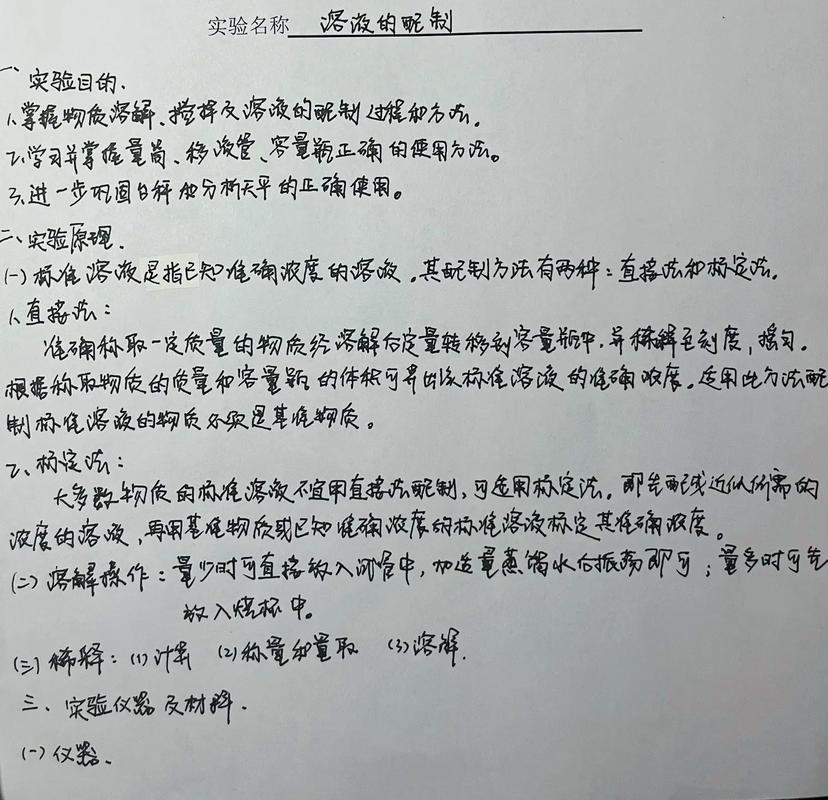 实验名称 溶液的配制
一、实验目的.
1.掌握物质溶解、搅拌及溶液的配制过程和方法。
2.学习并掌握量筒、移液管、容量瓶正确的使用方法。
3.进一步巩固台秤和分析天平的正确使用。
二、实验原理.
(一)标准溶液是指已知准确浓度的溶液。其配制方法有两种：直接法和标定法.
1.直接法：
准确称取一定质量的物质经溶解后定量转移到容量瓶中，并稀释至刻度，摇匀.
根据称取物质的质量和容量瓶的体积可算出该标准溶液的准确浓度。适用此方法配
制标准溶液的物质必须是基准物质。
2、标定法：
大多数物质的标准溶液不宜用直接法配制，可选用标定法。即先配成近似所需的
浓度的溶液，再用基准物质或已知准确浓度的标准溶液标定其准确浓度。
(二)溶解操作：量少时可直接放入试管中，加适量蒸馏水后振荡即可；量多时可先
放入烧杯中。
(三)稀释：(1)计算 (2)称量和量取 (3)溶解.
三、实验仪器及材料.
(一)仪器.